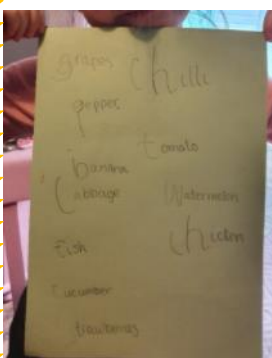 grapes
chilli
pepper
tomato
banana
cabbage
Watermelon
Fish
chicken
cucumber
strawberries